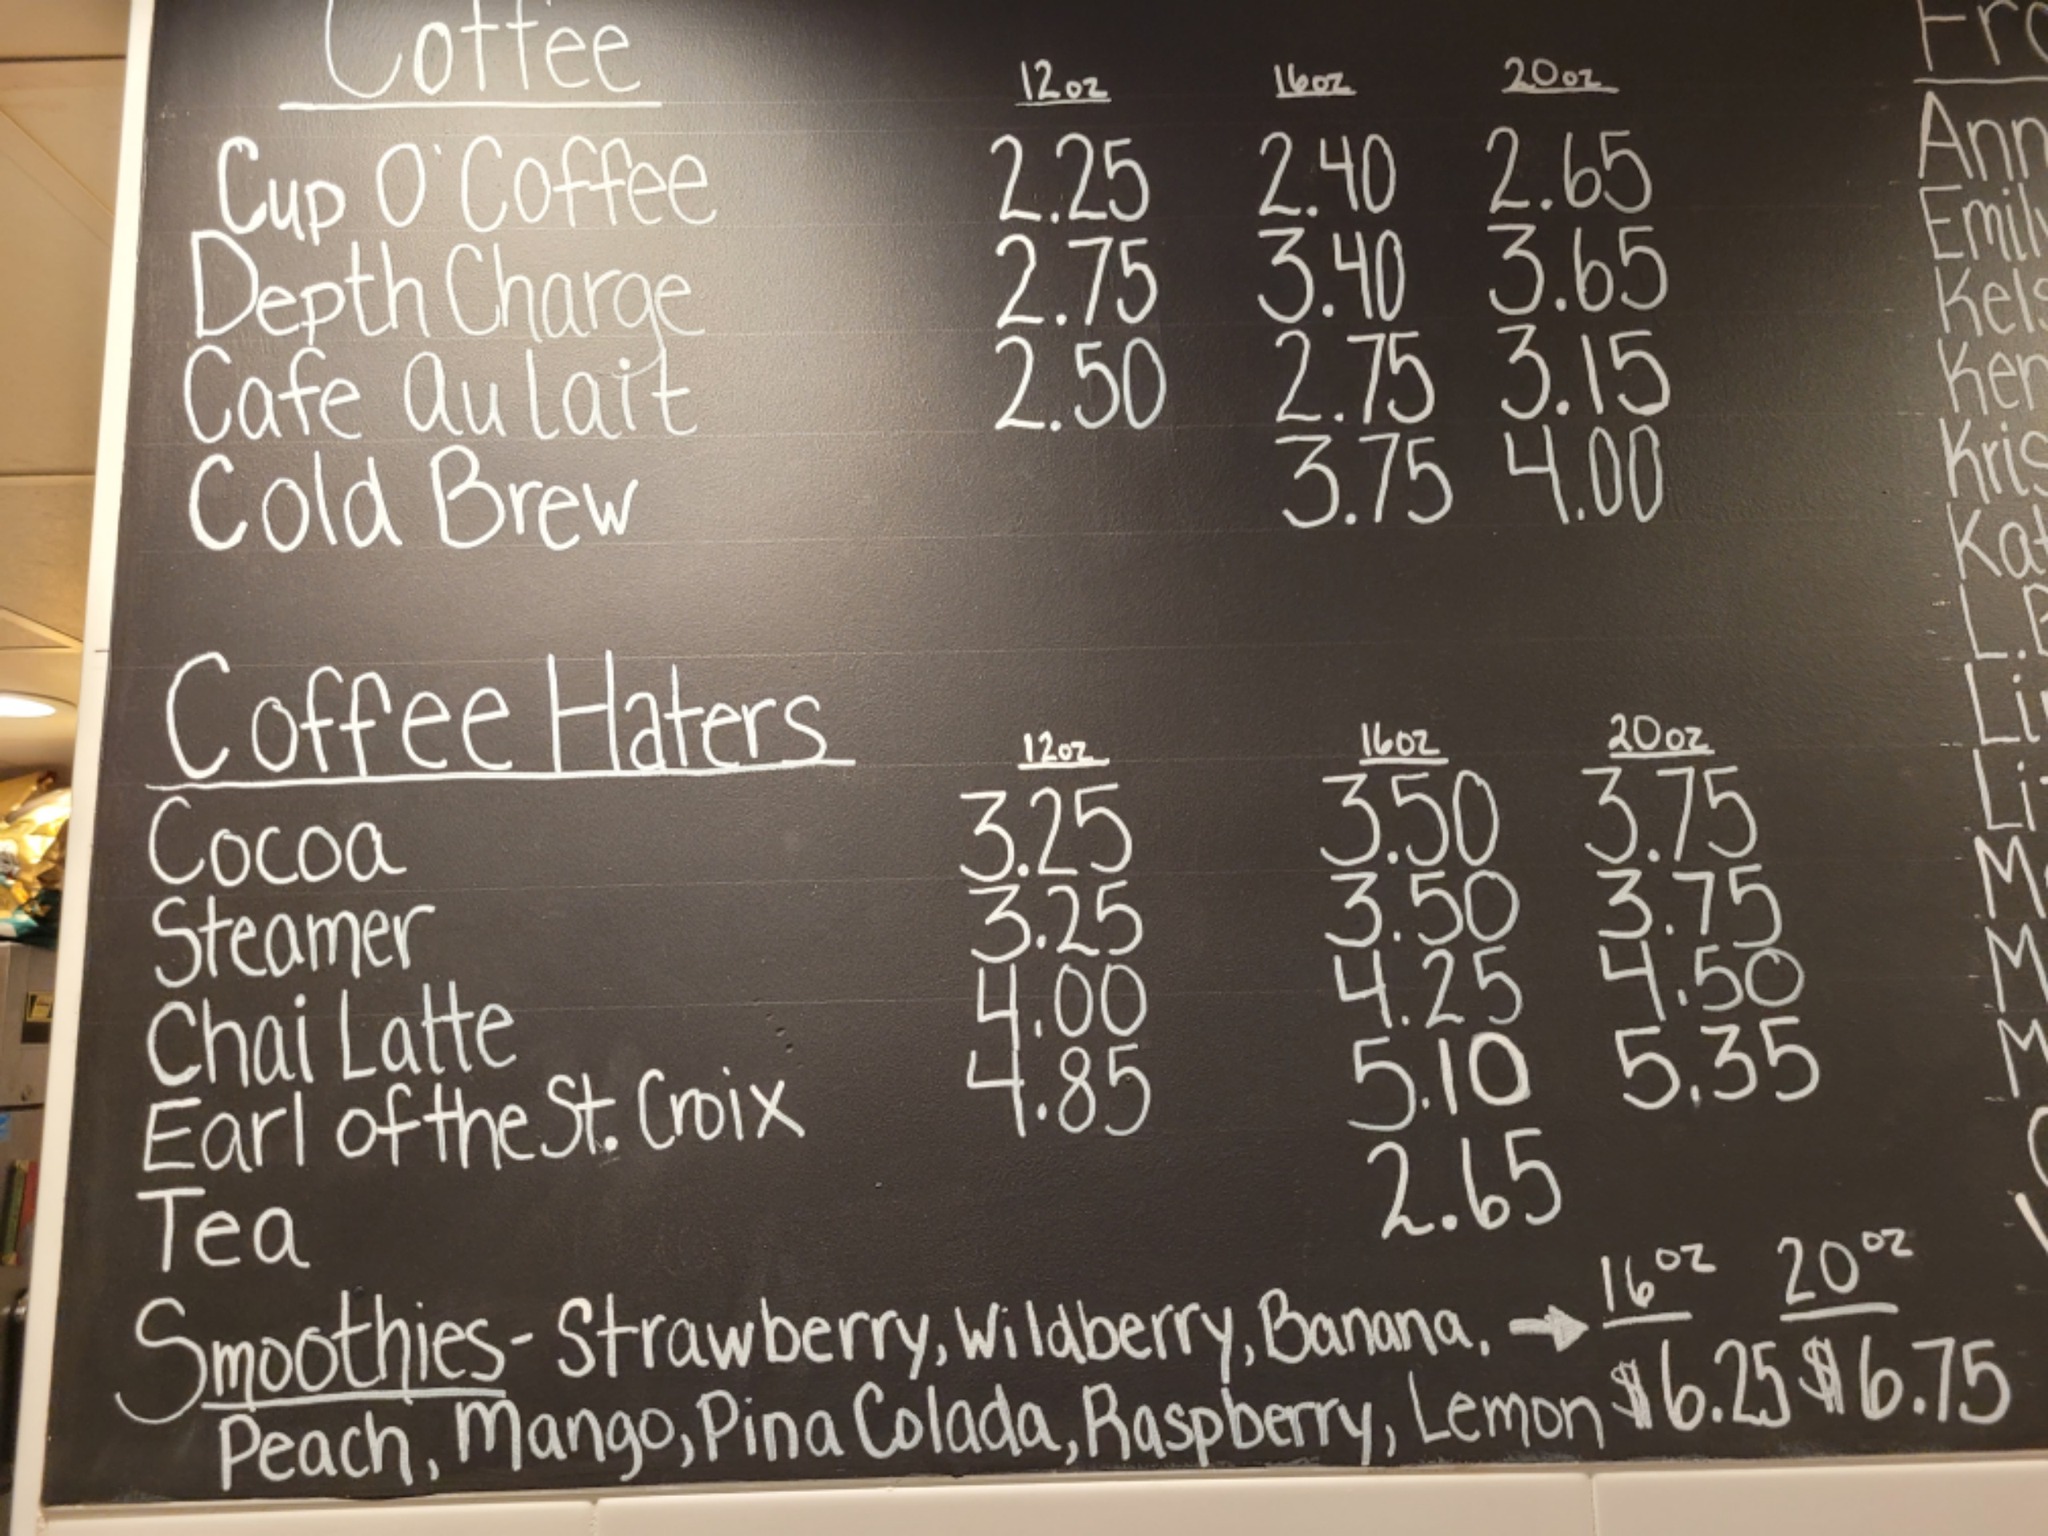 Coffee 12oz 16oz 20oz
Cup O' Coffee 2.25 2.40 2.65
Depth Charge 2.75 3.40 3.65
Cafe au lait 2.50 2.75 3.15
Cold Brew 3.75 4.00
Coffee Haters 12oz 16oz 20oz
Cocoa 3.25 3.50 3.75
Steamer 3.25 3.50 3.75
Chai Latte 4.00 4.25 4.50
Earl of the St. Croix 4.85 5.10 5.35
Tea 2.65
Smoothies - Strawberry, Wildberry, Banana, → 16oz 20oz
Peach, Mango, Pina Colada, Raspberry, Lemon $6.25 $6.75